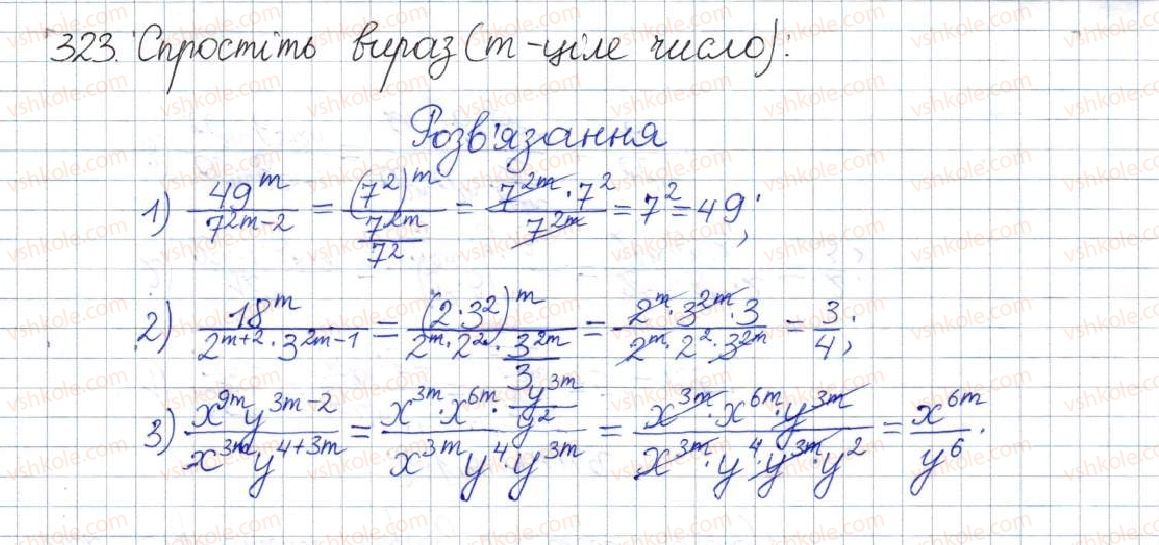 323. Спростіть вираз (m - ціле число):
Розв'язання
1) \frac{49^m}{7^{2m-2}} = \frac{(7^2)^m}{\frac{7^{2m}}{7^2}} = \frac{7^{2m} \cdot 7^2}{7^{2m}} = 7^2 = 49;
2) \frac{18^m}{2^{m+2} \cdot 3^{2m-1}} = \frac{(2 \cdot 3^2)^m}{2^m \cdot 2^2 \cdot \frac{3^{2m}}{3}} = \frac{2^m \cdot 3^{2m} \cdot 3}{2^m \cdot 2^2 \cdot 3^{2m}} = \frac{3}{4};
3) \frac{x^{9m} y^{3m-2}}{x^{3m} y^{4+3m}} = \frac{x^{3m} \cdot x^{6m} \cdot \frac{y^{3m}}{y^2}}{x^{3m} y^4 \cdot y^{3m}} = \frac{x^{3m} \cdot x^{6m} \cdot y^{3m}}{x^{3m} \cdot y^4 \cdot y^{3m} \cdot y^2} = \frac{x^{6m}}{y^6}.
vshkole.com